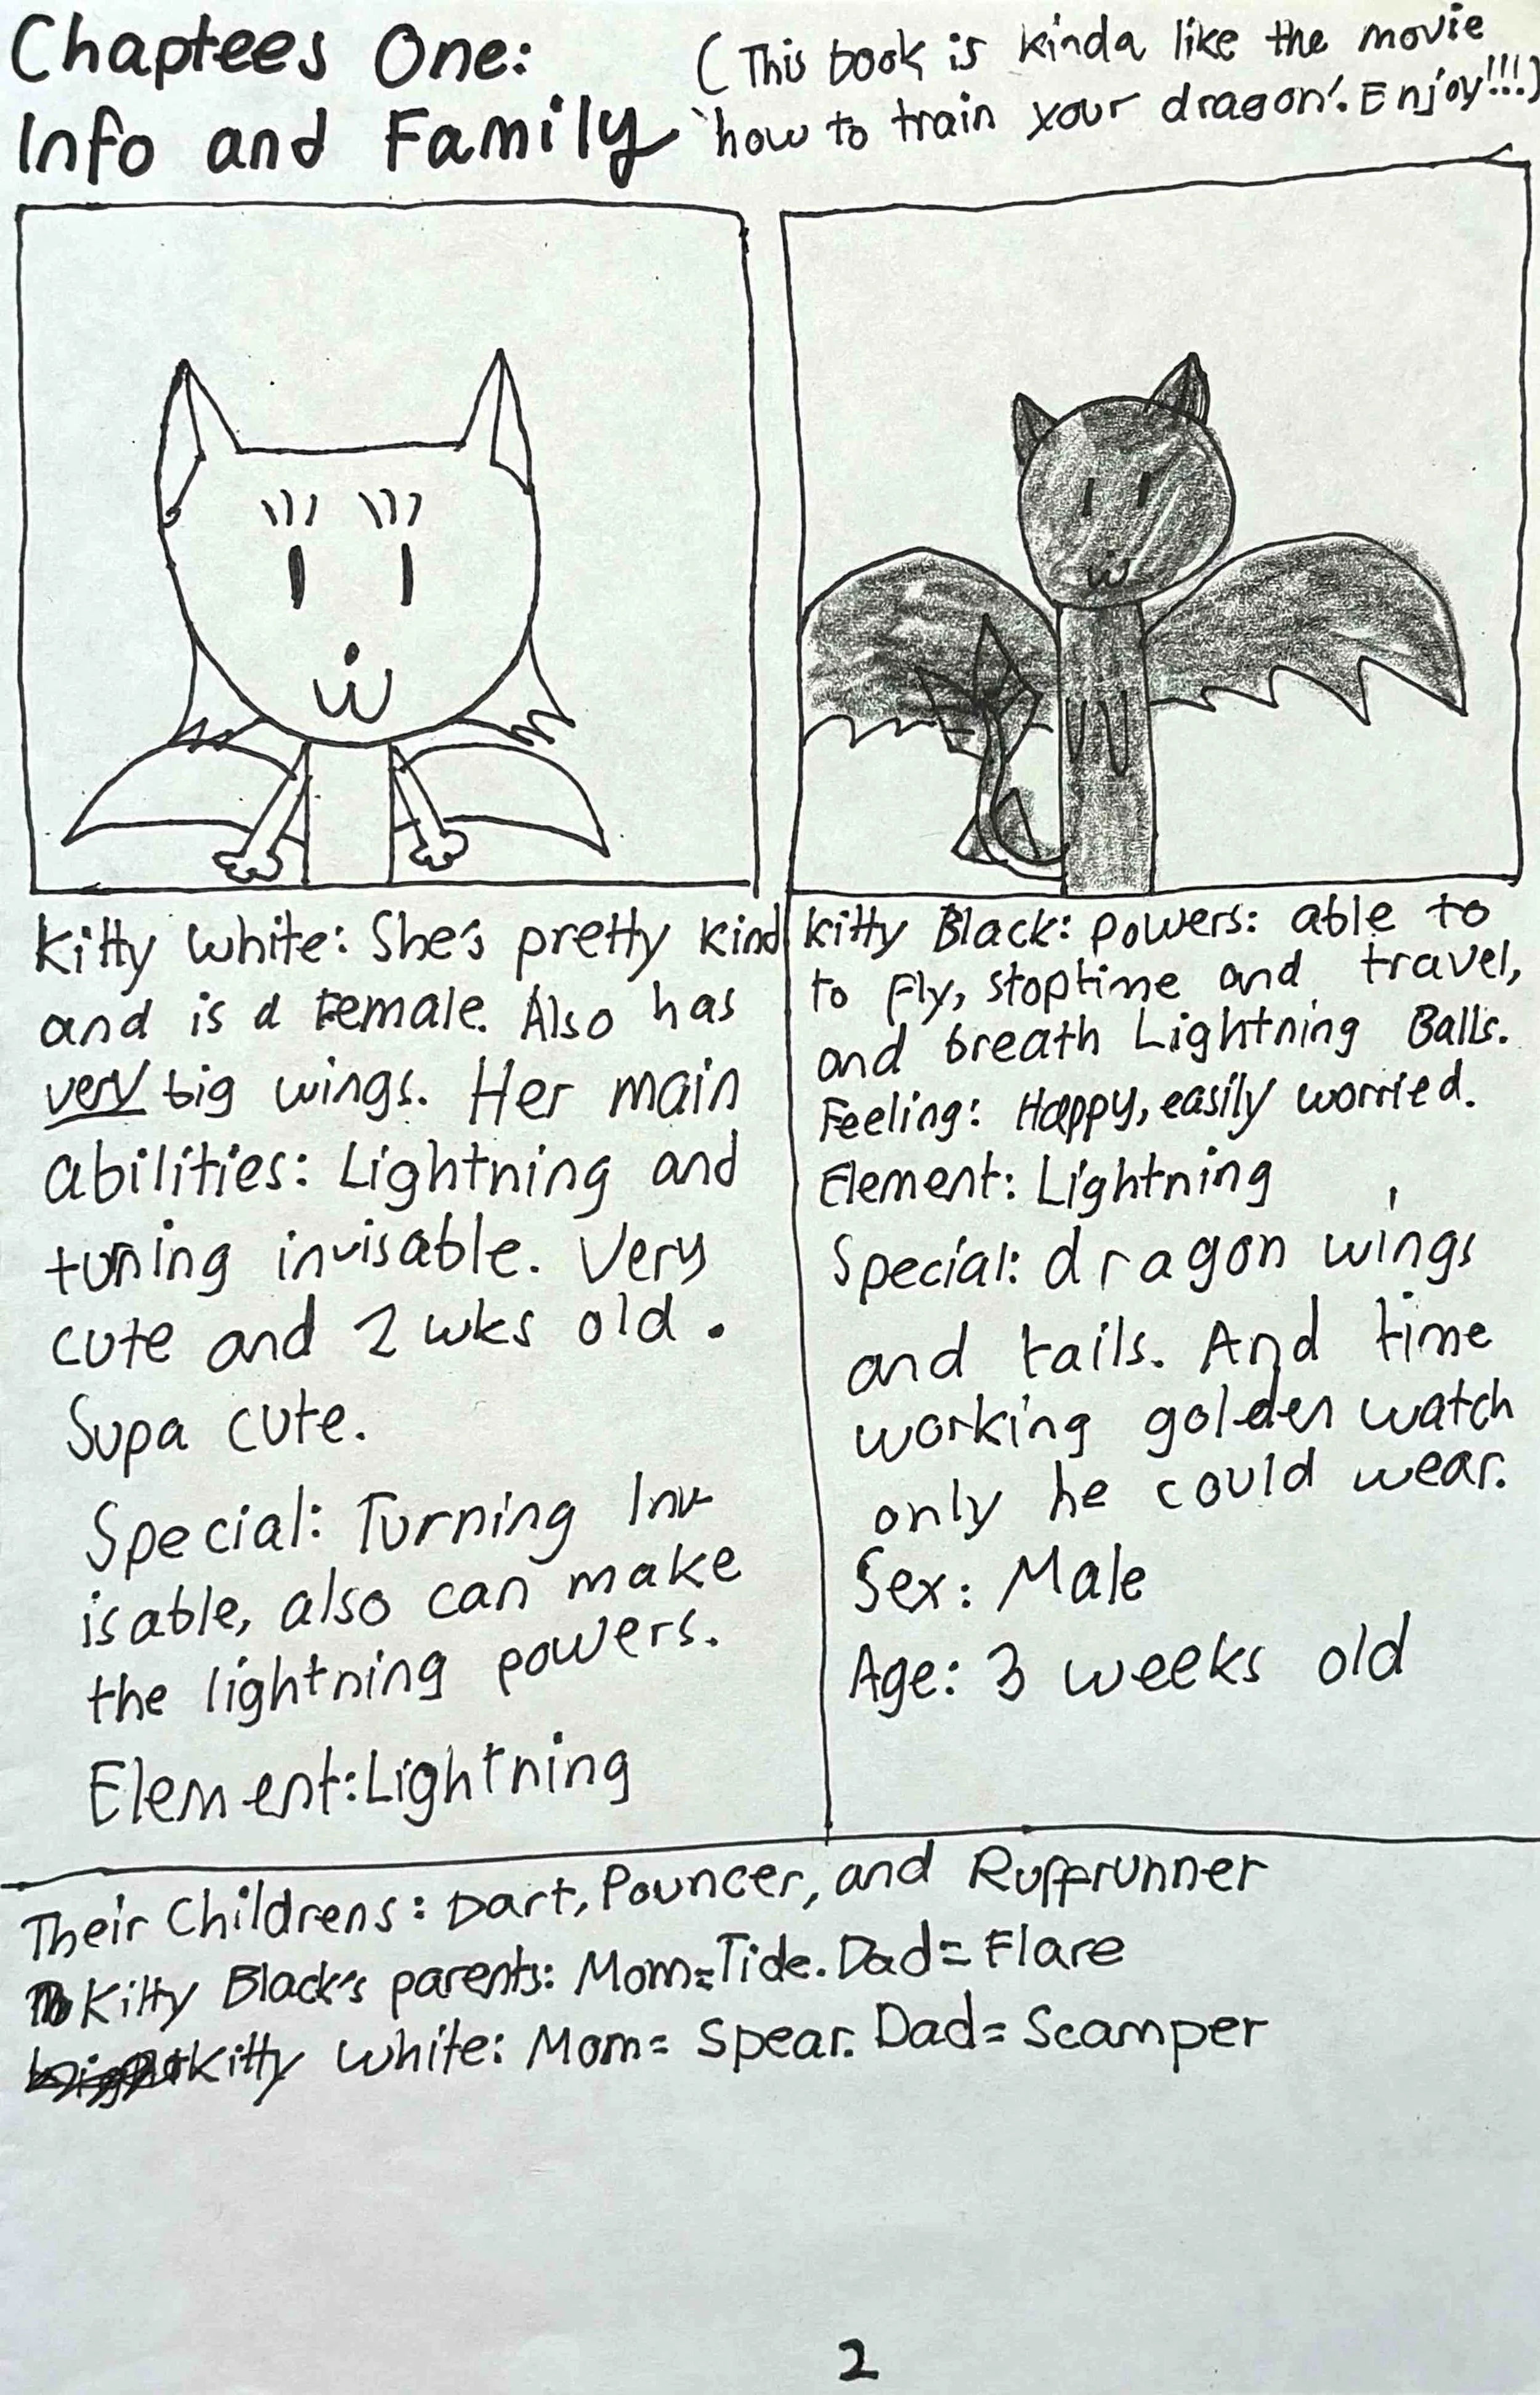 Chaptees One:
Info and Family
(This book is kinda like the movie
'how to train your dragon'. Enjoy!!!)
Kitty White: She's pretty kind
and is a Female. Also has
very big wings. Her main
abilities: Lightning and
turning invisable. Very
cute and 2 wks old.
Supa cute.
Special: Turning Inv-
isable, also can make
the lightning powers.
Element: Lightning
Kitty Black: powers: able to
to fly, stoptime and travel,
and breath Lightning Balls.
Feeling: Happy, easily worried.
Element: Lightning
Special: dragon wings
and tails. And time
working golden watch
only he could wear.
Sex: Male
Age: 3 weeks old
Their Childrens: Dart, Pouncer, and Ruffrunner
Kitty Black's parents: Mom=Tide. Dad= Flare
Kitty White: Mom= Spear. Dad= Scamper
2